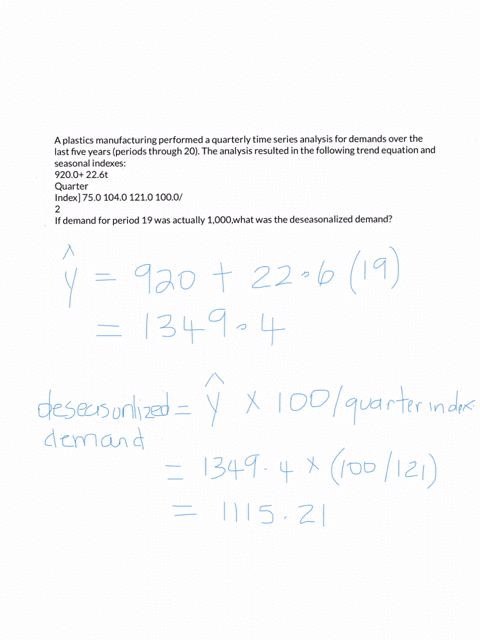 A plastics manufacturing performed a quarterly time series analysis for demands over the
last five years (periods through 20). The analysis resulted in the following trend equation and
seasonal indexes:
920.0+ 22.6t
Quarter
Index] 75.0 104.0 121.0 100.0/
2
If demand for period 19 was actually 1,000,what was the deseasonalized demand?
ŷ = 920 + 22.6 (19)
= 1349.4
deseasonlized = ŷ × 100/quarter index.
demand
= 1349.4 × (100/121)
= 1115.21